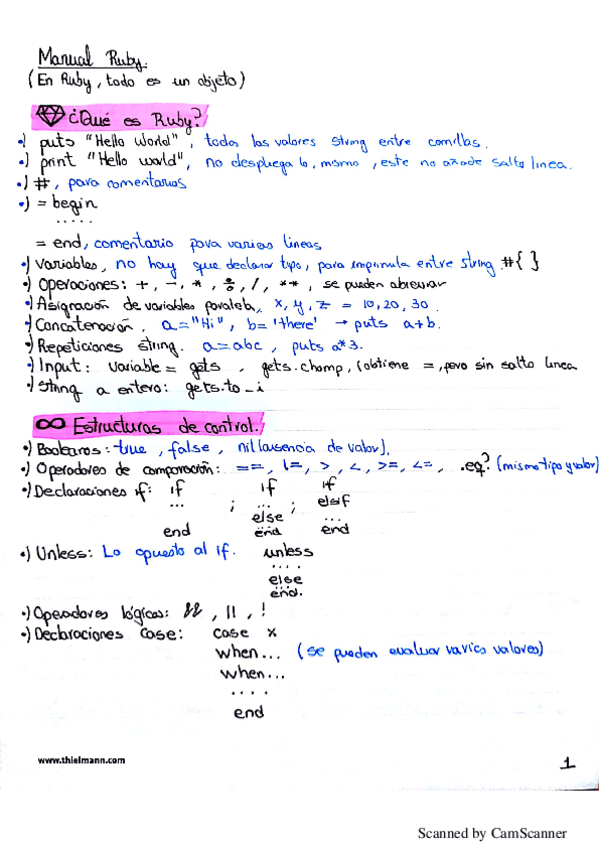 Manual Ruby.
(En Ruby, todo es un objeto)
¿Qué es Ruby?
•) puts "Hello World", todos los valores string entre comillas.
•) print "Hello world", no despliega lo mismo, este no añade salto linea.
•) #, para comentarios
•) = begin
.....
= end, comentario para varias lineas
•) Variables, no hay que declarar tipo, para imprimirla entre string #{ }
•) Operaciones: +, -, *, %, /, **, se pueden abreviar
•) Asignación de variables paralela, x, y, z = 10, 20, 30.
•) Concatenación, a="Hi", b='there' → puts a+b.
•) Repeticiones string. a=abc, puts a*3.
•) Input: variable = gets, gets.chomp, (obtiene =, pero sin salto linea
•) String a entero: gets.to_i
∞ Estructuras de control.
•) Booleanos: true, false, nil (ausencia de valor).
•) Operadores de comparación: ==, !=, >, <, >=, <=, .eq? (mismo tipo y valor)
•) Declaraciones if: if if if
... ; ... ; elsif
else ...
end end end
•) Unless: Lo opuesto al if. unless
....
else
end.
•) Operadores lógicos: &&, ||, !
•) Declaraciones Case: case x
when... (se pueden evaluar varios valores)
when...
....
end
www.thielmann.com
1
Scanned by CamScanner